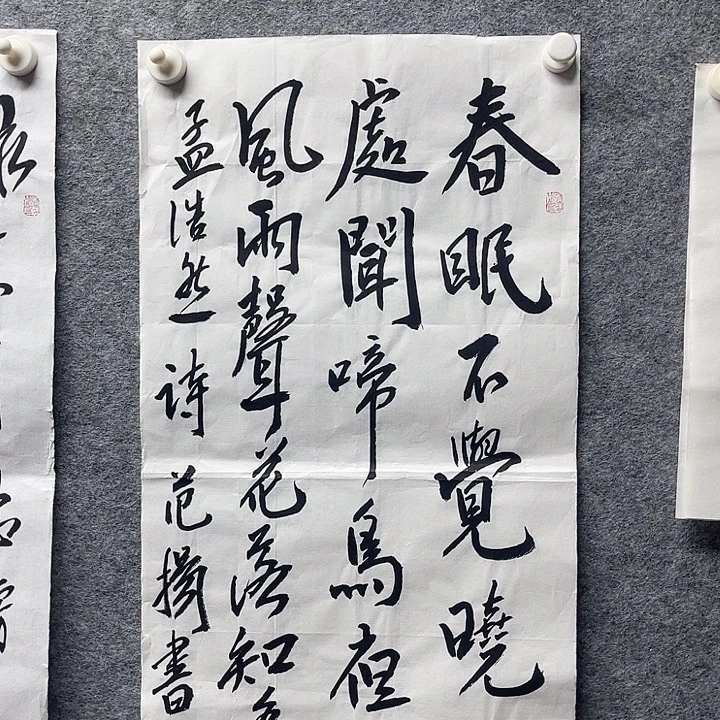 春眠不覺曉
處聞啼鳥夜
風雨聲花落知多
孟浩然詩 范 書